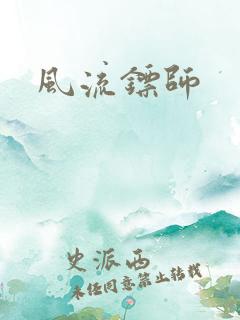 風流鏢師
史派西
未经同意禁止转载